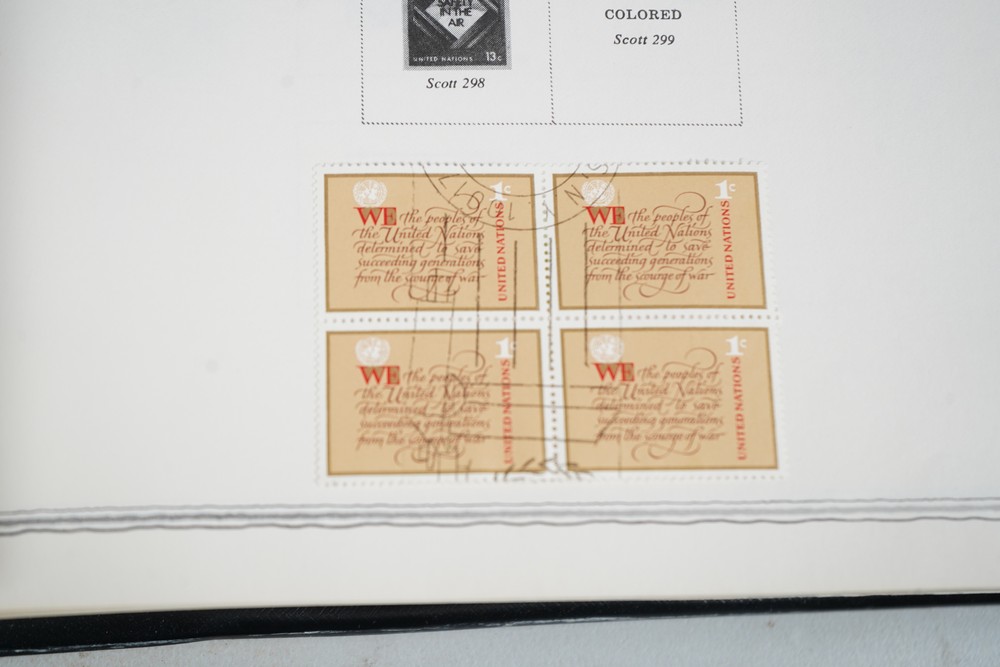 SAFETY
IN THE
AIR
UNITED NATIONS 13c
Scott 298
COLORED
Scott 299
1c
WE The peoples of
the United Nations
determined to save
succeeding generations
from the scourge of war
UNITED NATIONS
1c
WE The peoples of
the United Nations
determined to save
succeeding generations
from the scourge of war
UNITED NATIONS
1c
WE The peoples of
the United Nations
determined to save
succeeding generations
from the scourge of war
UNITED NATIONS
1c
WE The peoples of
the United Nations
determined to save
succeeding generations
from the scourge of war
UNITED NATIONS